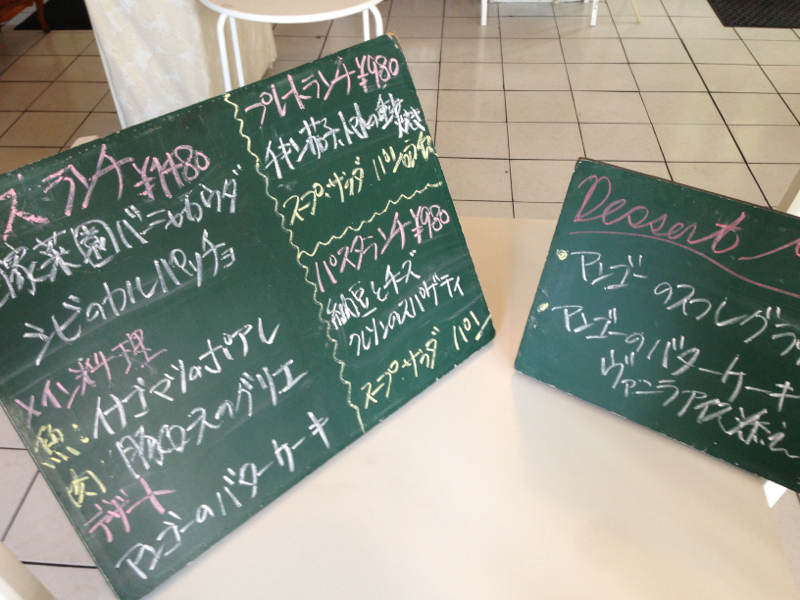 スランチ ¥1480
家菜園バーニャカウダ
シビのカルパッチョ
メイン料理
魚:イナゴマツのポアレ
肉:豚ロースのグリエ
デザート
マンゴーのバターケーキ
プレートランチ ¥980
チキン茄子、トマトの重ね焼き
スープ・サラダ パン
パスタランチ ¥980
納豆とチーズ
クレソンのスパゲティ
スープ・サラダ パン
Dessert
・マンゴーのスフレグラ
・マンゴーのバターケーキ
ヴァニラアイス添え